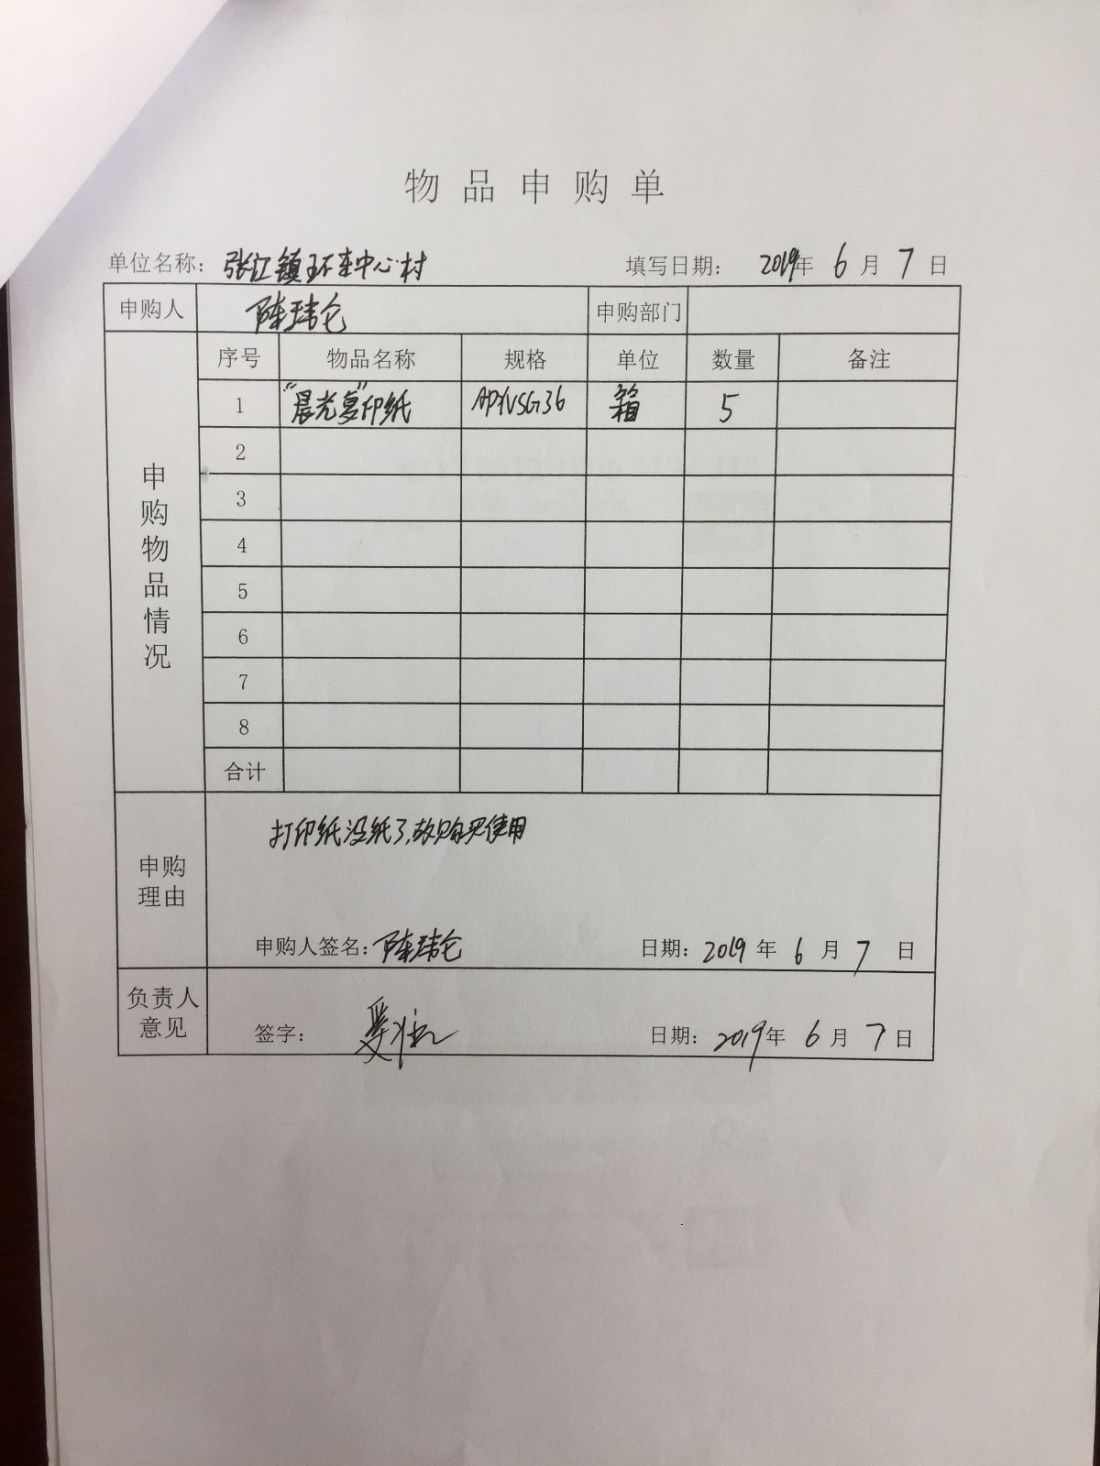 物品申购单
单位名称：张江镇环东中心村 填写日期：2019年6月7日
申购人 陈玮仑 申购部门
申购物品情况
序号 物品名称 规格 单位 数量 备注
1 "晨光复"印纸 APYVSG36 箱 5
2
3
4
5
6
7
8
合计
申购理由
打印纸没纸了,故购买使用
申购人签名：陈玮仑 日期：2019年6月7日
负责人意见
签字： 日期：2019年6月7日